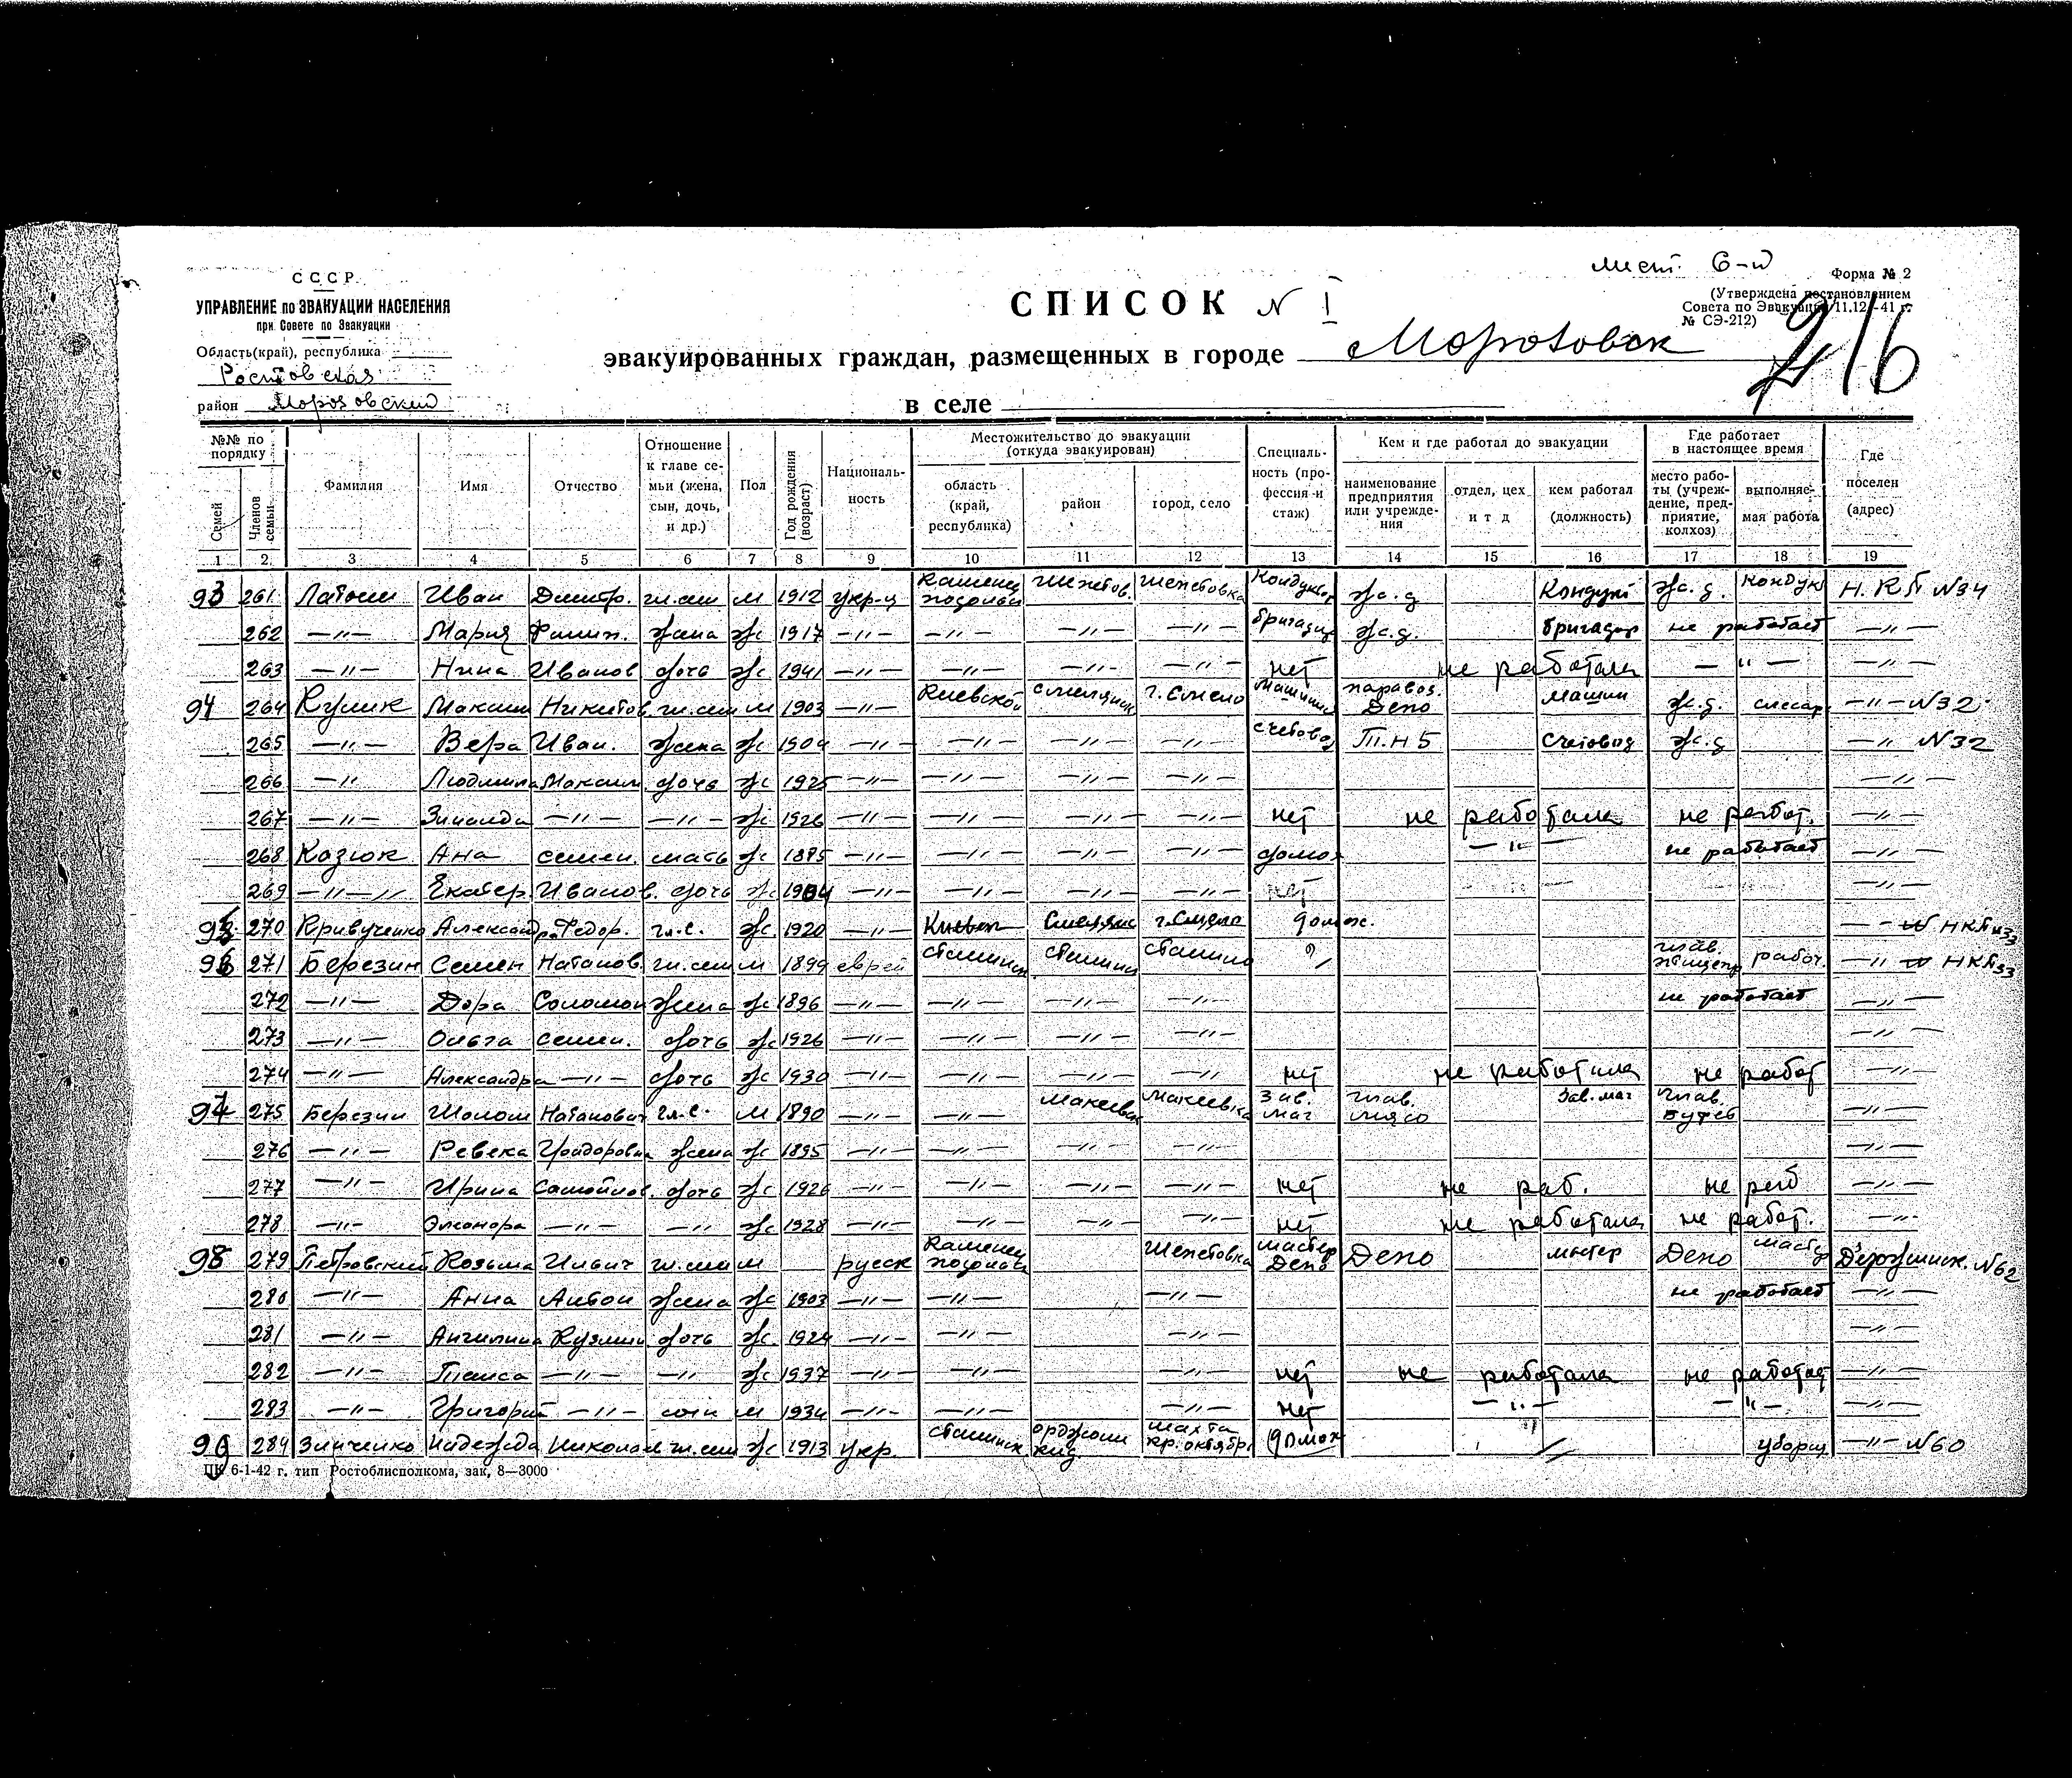 лист 6-й
СССР
УПРАВЛЕНИЕ по ЭВАКУАЦИИ НАСЕЛЕНИЯ
при Совете по Эвакуации
Область(край), республика
Ростовская
район Морозовский
СПИСОК N I
эвакуированных граждан, размещенных в городе Морозовск
в селе
Форма № 2
(Утверждена постановлением
Совета по Эвакуации 11.12-41 г.
№ СЭ-212)
16
№№ по порядку
Семей
Членов семьи
Фамилия
Имя
Отчество
Отношение к главе семьи (жена, сын, дочь, и др.)
Пол
Год рождения (возраст)
Националь-ность
Местожительство до эвакуации (откуда эвакуирован)
область (край, республика)
район
город, село
Специаль-ность (про-фессия и стаж)
Кем и где работал до эвакуации
наименование предприятия или учрежде-ния
отдел, цех и т д
кем работал (должность)
Где работает в настоящее время
место рабо-ты (учреж-дение, пред-приятие, колхоз)
выполняе-мая работа
Где поселен (адрес)
1 2 3 4 5 6 7 8 9 10 11 12 13 14 15 16 17 18 19
93 261 Иван Дмитр. гл.сем м 1912 укр-ц Каменец подольск Шепетов. Шепетовка Кондуктор ж.д Кондукт ж.д. Кондук Н.К.П N34
262 —"— Мария Филип. жена ж 1917 —"— —"— —"— —"— бригадир ж.д. бригадир не работает —"—
263 —"— Нина Иванов дочь ж 1941 —"— —"— —"— —"— нет не работала —"— —"—
94 264 Кулик Максим Никитов. гл.сем м 1903 —"— Киевской смелянск г.Смело машинис паровоз. Депо машин ж.д. слесар. —"— N32
265 —"— Вера Иван. жена ж 1904 —"— —"— —"— —"— счетовод Т.Н5 Счетовод ж.д —"— N32
266 —"— Людмила Максим. дочь ж 1925 —"— —"— —"— —"— —"—
267 —"— Зинаида —"— —"— ж 1926 —"— —"— —"— —"— нет не работала не работ. —"—
268 Казюк Ана семен. мать ж 1875 —"— —"— —"— —"— домох —"— не работает —"—
269 —"— Екатер. Иванов. дочь ж 1904 —"— —"— —"— —"— нет —"—
95 270 Кривученко Александра Федор. гл.с. ж 1920 —"— Киевск Смелянс г.Смела домох. НКП N33
96 271 Березин Семен Натанов. гл.сем м 1899 еврей сталинск. сталинск сталино глав. птицепр работ. —"— НКП 33
272 —"— Дора Соломон жена ж 1896 —"— —"— —"— —"— не работает —"—
273 —"— Ольга семен. дочь ж 1926 —"— —"— —"— —"— —"—
274 —"— Александра —"— дочь ж 1930 —"— —"— —"— —"— нет не работала не работ —"—
97 275 Березин Шолом Натанович гл.с. м 1890 —"— —"— Макеевск Макеевка Зав. маг глав. мясо Зав.маг глав. —"—
276 —"— Ревека жена ж 1895 —"— —"— —"— —"— —"—
277 —"— Ирина Самойлов. дочь ж 1926 —"— —"— —"— —"— нет не раб. не раб —"—
278 —"— Элеонора —"— —"— ж 1928 —"— —"— —"— —"— нет не работала не работ. —"—
98 279 Петровский Козьма Ильич гл.сем м русск Каменец подольск Шепетовка мастер Депо Депо мастер Депо мастер Дзержинск. N62
280 —"— Анна Антон жена ж 1903 —"— —"— —"— не работает —"—
281 —"— Ангилина Кузмин дочь ж. 1924 —"— —"— —"— —"—
282 —"— Таиса —"— —"— ж 1937 —"— —"— —"— нет не работала не работает —"—
283 —"— Григорий —"— сын м 1934 —"— —"— —"— нет —"— —"— —"—
99 284 Зинченко Надежда Николаев гл.сем ж 1913 укр. сталинск орджони кид. шахта кр.октябрь домох уборщ —"— N60
ЦК 6-1-42 г. тип Ростоблисполкома, зак, 8—3000